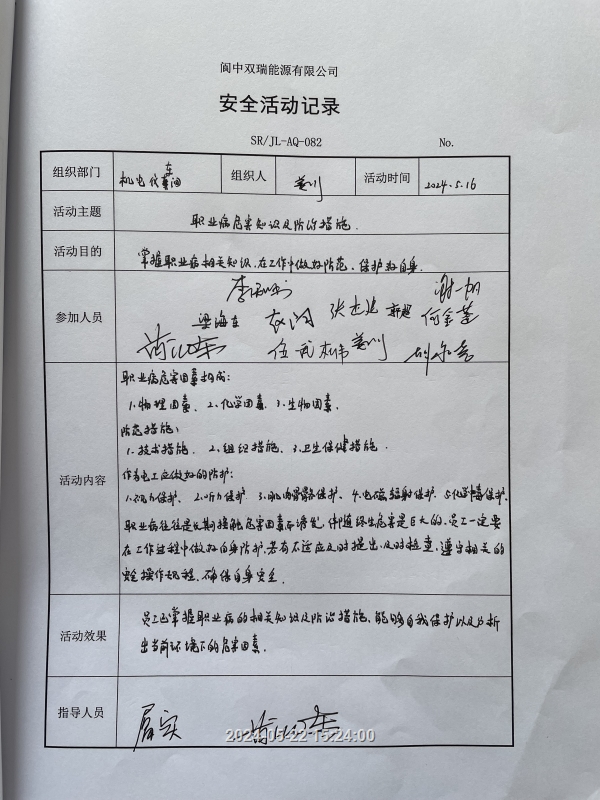 阆中双瑞能源有限公司
安全活动记录
SR/JL-AQ-082 No.
组织部门 机电 车间 组织人 活动时间 2024.5.16
活动主题 职业病危害知识及防治措施.
活动目的 掌握职业病相关知识,在工作中做好防范、保护好自身.
参加人员
梁海东 张
伍武
职业病危害因素构成:
1.物理因素、2.化学因素、3.生物因素.
防范措施:
1.技术措施. 2.组织措施、3.卫生保健措施.
活动内容
作为电工应做好的防护:
1.视力保护、2.听力保护、3.肌肉骨骼保护、4.电磁辐射保护、5.化学毒保护.
职业病往往是长期接触危害因素而诱发,伴随终生危害是巨大的.员工一定要
在工作过程中做好自身防护.若有不适应及时提出、及时检查.遵守相关的
安全操作规程.确保自身安全.
员工已掌握职业病的相关知识及防治措施、能够自我保护以及分析
活动效果
出当前环境下的危害因素.
指导人员 属实
2024-05-22 15:24:00